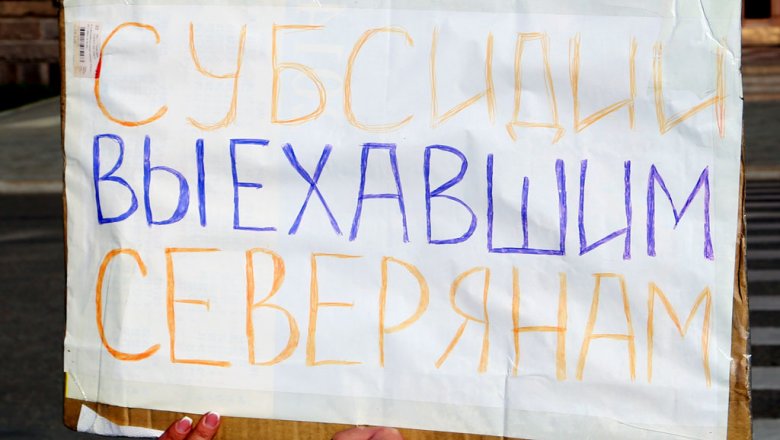 СУБСИДИИ
ВЫЕХАВШИМ
СЕВЕРЯНАМ